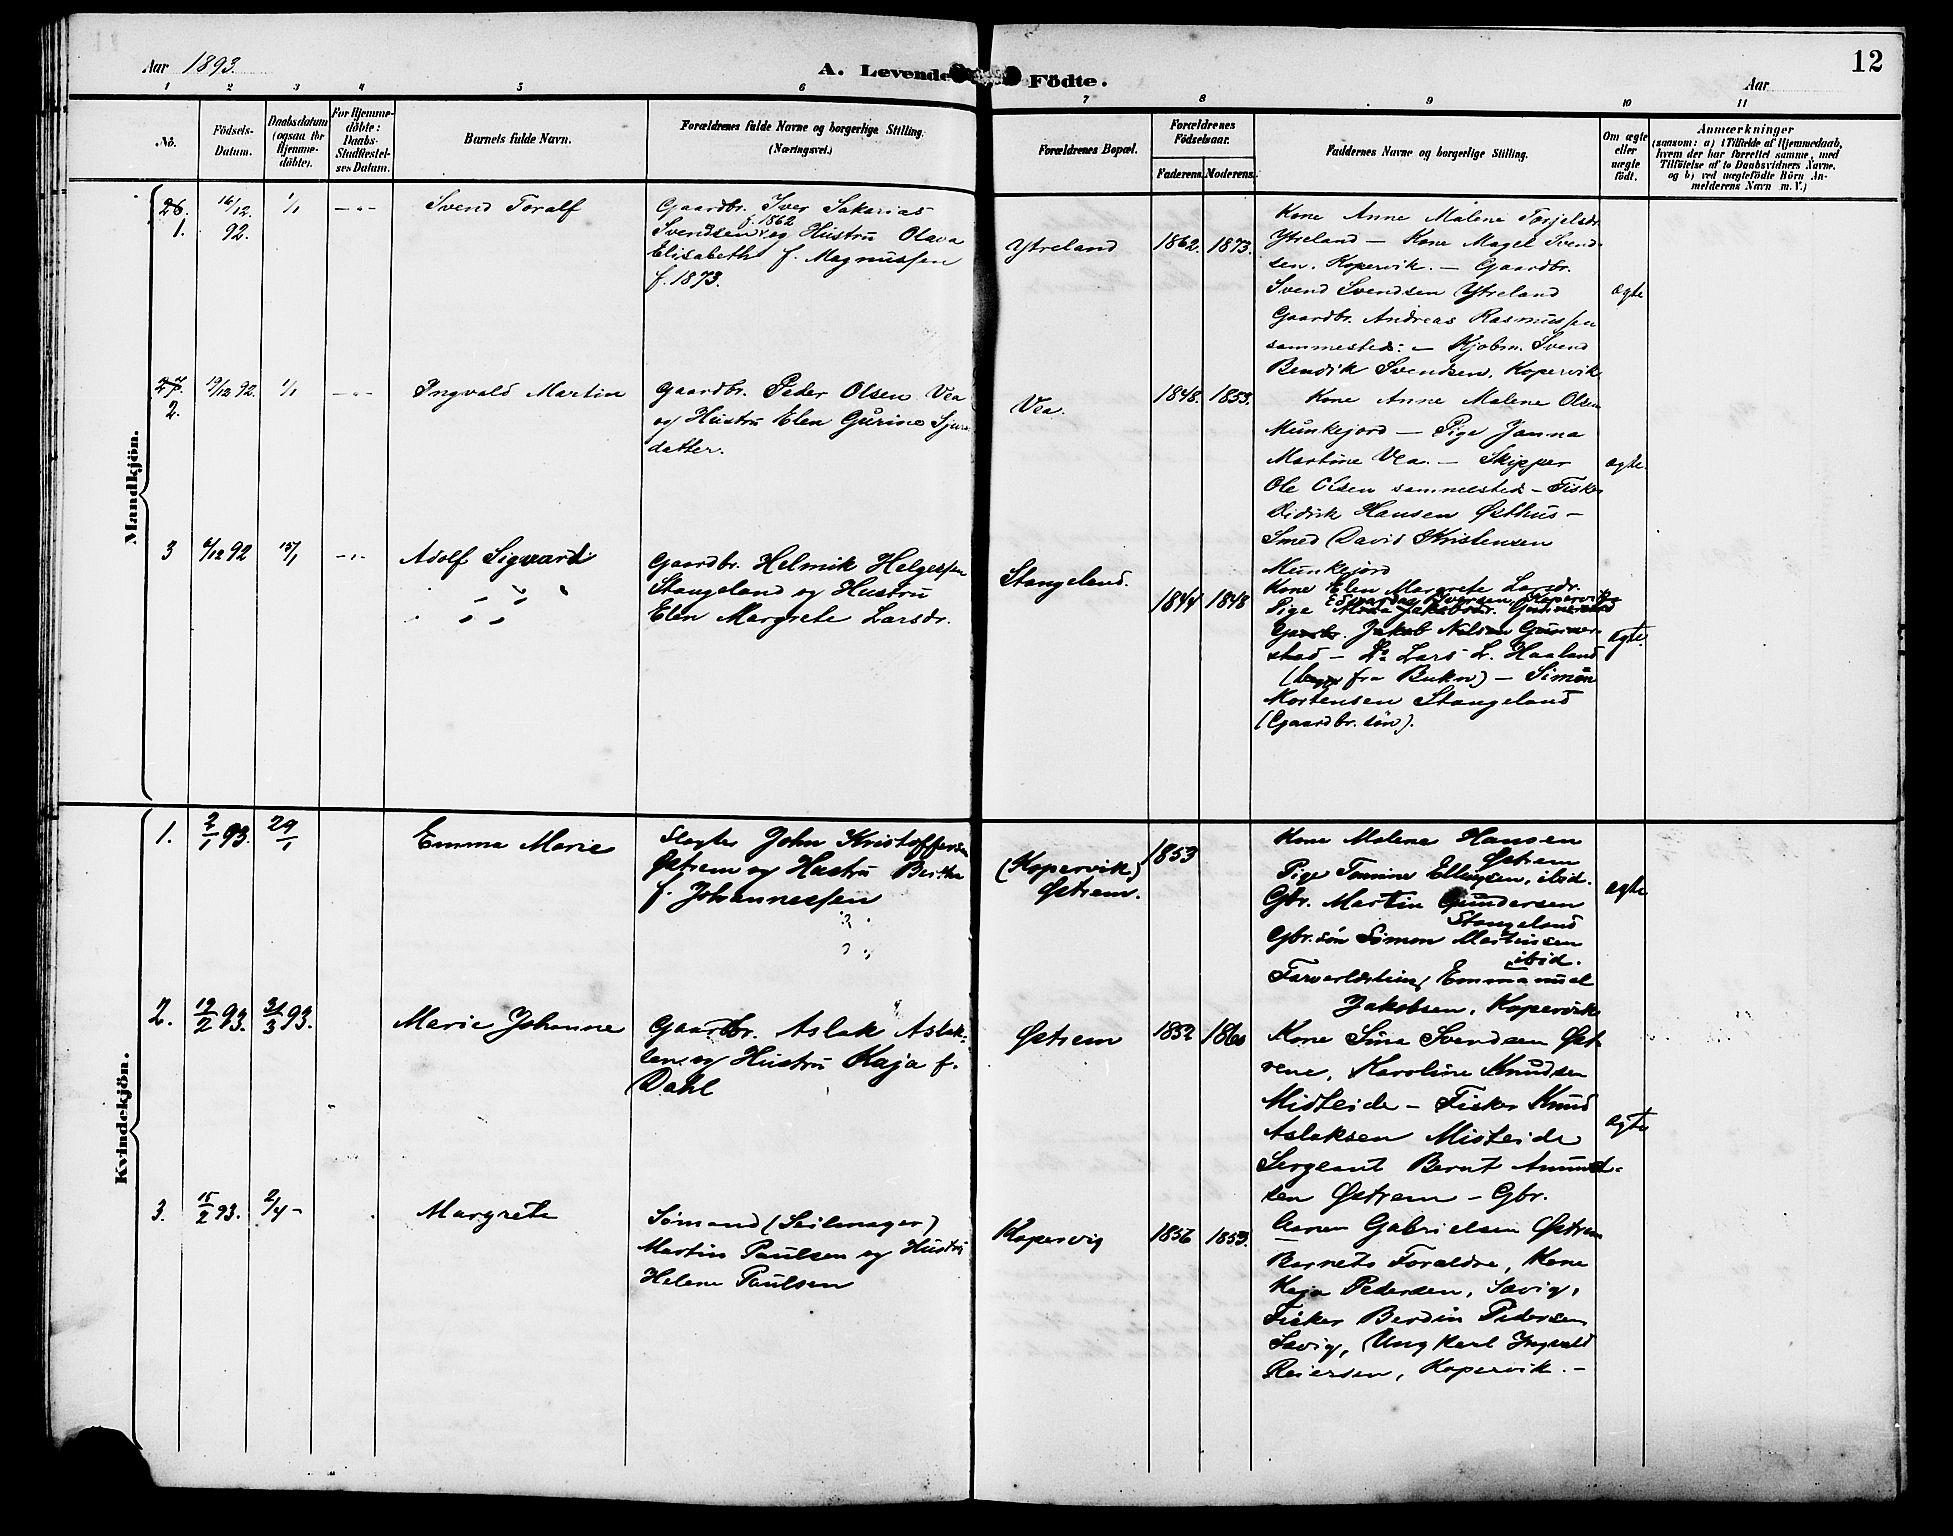 12
Aar 1893.
A. Levende Födte.
Aar
1 2 3 4 5 6 7 8 9 10 11
No.
Födsels-
Datum.
Daabsdatum
(ogsaa for
Hjemme-
döbte).
For Hjemme-
döbte:
Daabs-
Stadfæstel-
ses Datum.
Barnets fulde Navn.
Forældrenes fulde Navne og borgerlige Stilling.
(Næringsvei.)
Forældrenes Bopæl.
Forældrenes
Födselsaar.
Faderens. Moderens.
Faddernes Navne og borgerlige Stilling.
Om ægte
eller
uægte
født.
Anmærkninger
(saasom: a) i Tilfælde af Hjemmedaab,
hvem der har forrettet samme, med
Tilföielse af to Daabsvidners Navne.
og b) ved uægtefödte Börn An-
melderens Navn m. V.)
Mandkjön.
26.
1.
16/12.
92.
1/1
—"—
Svend Toralf
Gaardbr. Iver Sakarias
f. 1862
Svendsen og Hustru Olava
Elisabeth f. Magnussen
f. 1873.
Ytreland
1862. 1873.
Kone Anne Malene Torjelsdr.
Ytreland — Kone Magel Svend-
sen. Kopervik. — Gaardbr.
Svend Svendsen Ytreland
Gaardbr. Andreas Rasmussen
sammesteds: — Kjøbm. Svend
Bendik Svendsen, Kopervik
ægte
27.
2.
19/12 92.
1/1
—"—
Ingvald Martin
Gaardbr. Peder Olsen Vea
og Hustru Elen Gurine Sjurs-
datter.
Vea.
1848. 1853.
Kone Anne Malene Olsen
Munkejord — Pige Janna
Martine Vea. — Skipper
Ole Olsen sammesteds — Fisker
Didrik Hansen Østhus —
Smed David Kristensen
Munkejord
ægte
3
6/12 92
15/1
—"—
Adolf Sigvard
Gaardbr. Helmik Helgessen
Stangeland og Hustru
Elen Margrete Larsdr.
Stangeland.
1844 1848
Kone Elen Margrete Larsdr.
Iversen, Kopervik
Pige Jakobsdr. Gunnerstad
Gaardbr. Jakob Nilsen Gunner-
stad — Do Lars L. Haaland
( fra Bukn) — Simon
Mortensen Stangeland
(Gaardbr. søn).
ægte
Kvindekjön.
1.
2/1 93.
29/1
Emma Marie
Slagter John Kristoffersen
Østrem og Hustru Bertha
f. Johannessen
(Kopervik)
Østrem.
1853
Kone Malene Hansen
Østrem
Pige Tomine Ellingsen, ibid.
Gbr. Martin Gundersen
Stangeland
Gbr. søn Simon Martinsen
ibid.
Farverlærling Emmanuel
Jakobsen, Kopervik
ægte
2.
19/2 93.
31/3 93.
Marie Johanne
Gaardbr. Aslak Aslak-
sen og Hustru Kaja f.
Dahl
Østrem
1852 1860
Kone Sina Svendsen Øst-
rene, Karoline Knudsen
Midteide — Fisker Knud
Aslaksen Misteide
Sergeant Bernt Amund-
sen Østrem — Gbr.
Gabrielsen Østrem
ægte
3.
15/2 93.
2/4 —
Margrete
Sømand (Seilmager)
Martin Paulsen og Hustru
Helene Paulsen
Kopervig
1856 1853.
Barnets Forældre, Kone
Kaja Pedersen, Sævig,
Fisker Berdin Pedersen
Sævig, Ungkarl Ingvald
Reiersen, Kopervik. —